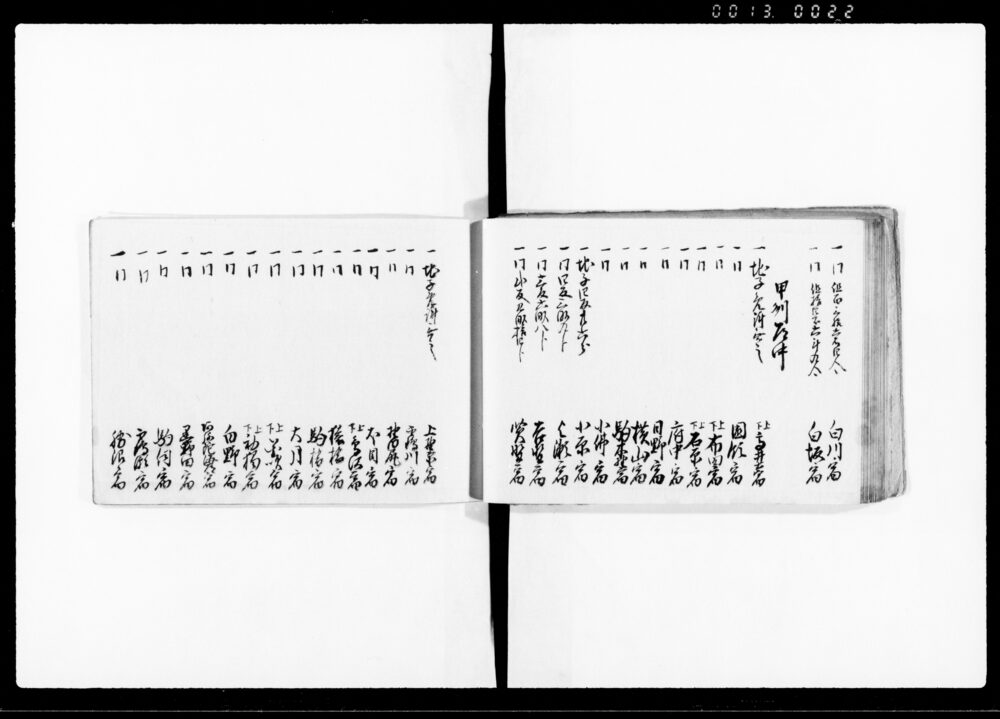 0013 0022
一 同 白川宿
一 同 白坂宿
甲州道中
一 地子免許無之 上下高井戸宿
一 同 国領宿
一 同 上下布田宿
一 同 上下石原宿
一 同 府中宿
一 同 日野宿
一 同 横山宿
一 同 駒木野宿
一 同 小仏宿
一 地子 小原宿
一 同 与瀬宿
一 同 吉野宿
一 同 関野宿
一 地子免許無之 上野原宿
一 同 鶴川宿
一 同 野田尻宿
一 同 犬目宿
一 同 上下鳥沢宿
一 同 猿橋宿
一 同 駒橋宿
一 同 大月宿
一 同 上下花咲宿
一 同 上下初狩宿
一 同 白野宿
一 同 阿弥陀海道宿
一 同 黒野田宿
一 同 駒飼宿
一 同 鶴瀬宿
一 同 勝沼宿